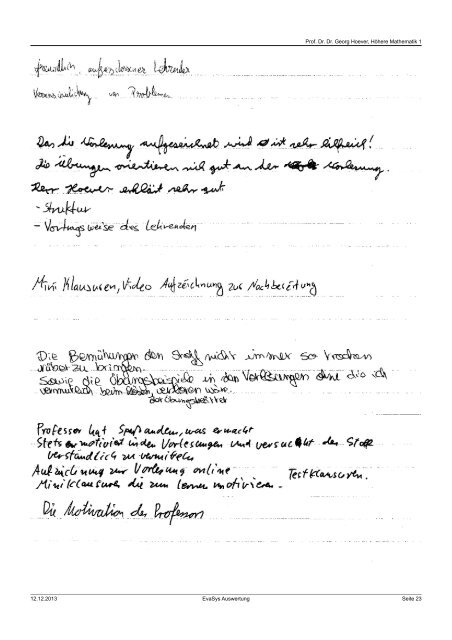 Prof. Dr. Dr. Georg Hoever, Höhere Mathematik 1
freundlich, aufgeschlossener Lehrender
Veranschaulichung von Problemen
Das die Vorlesung aufgezeichnet wird ist sehr hilfreich!
Die Übungen orientieren sich gut an der Vorlesung.
Herr Hoever erklärt sehr gut
- Struktur
- Vortragsweise des Lehrenden
Mini Klausuren, Video Aufzeichnung zur Nachbereitung
Die Bemühungen den Stoff nicht immer so trocken
rüber zu bringen.
Sowie die Übungsbeispiele in den Vorlesungen ohne die ich
vermutlich beim lösen, verloren wäre.
der Übungsblätter
Professor hat Spaß an dem, was er macht
Stets motiviert in den Vorlesungen und versucht den Stoff
verständlich zu vermitteln
Aufzeichnung zur Vorlesung online
Testklausuren.
Miniklausuren die zum lernen motivieren.
Die Motivation des Professors
12.12.2013
EvaSys Auswertung
Seite 23